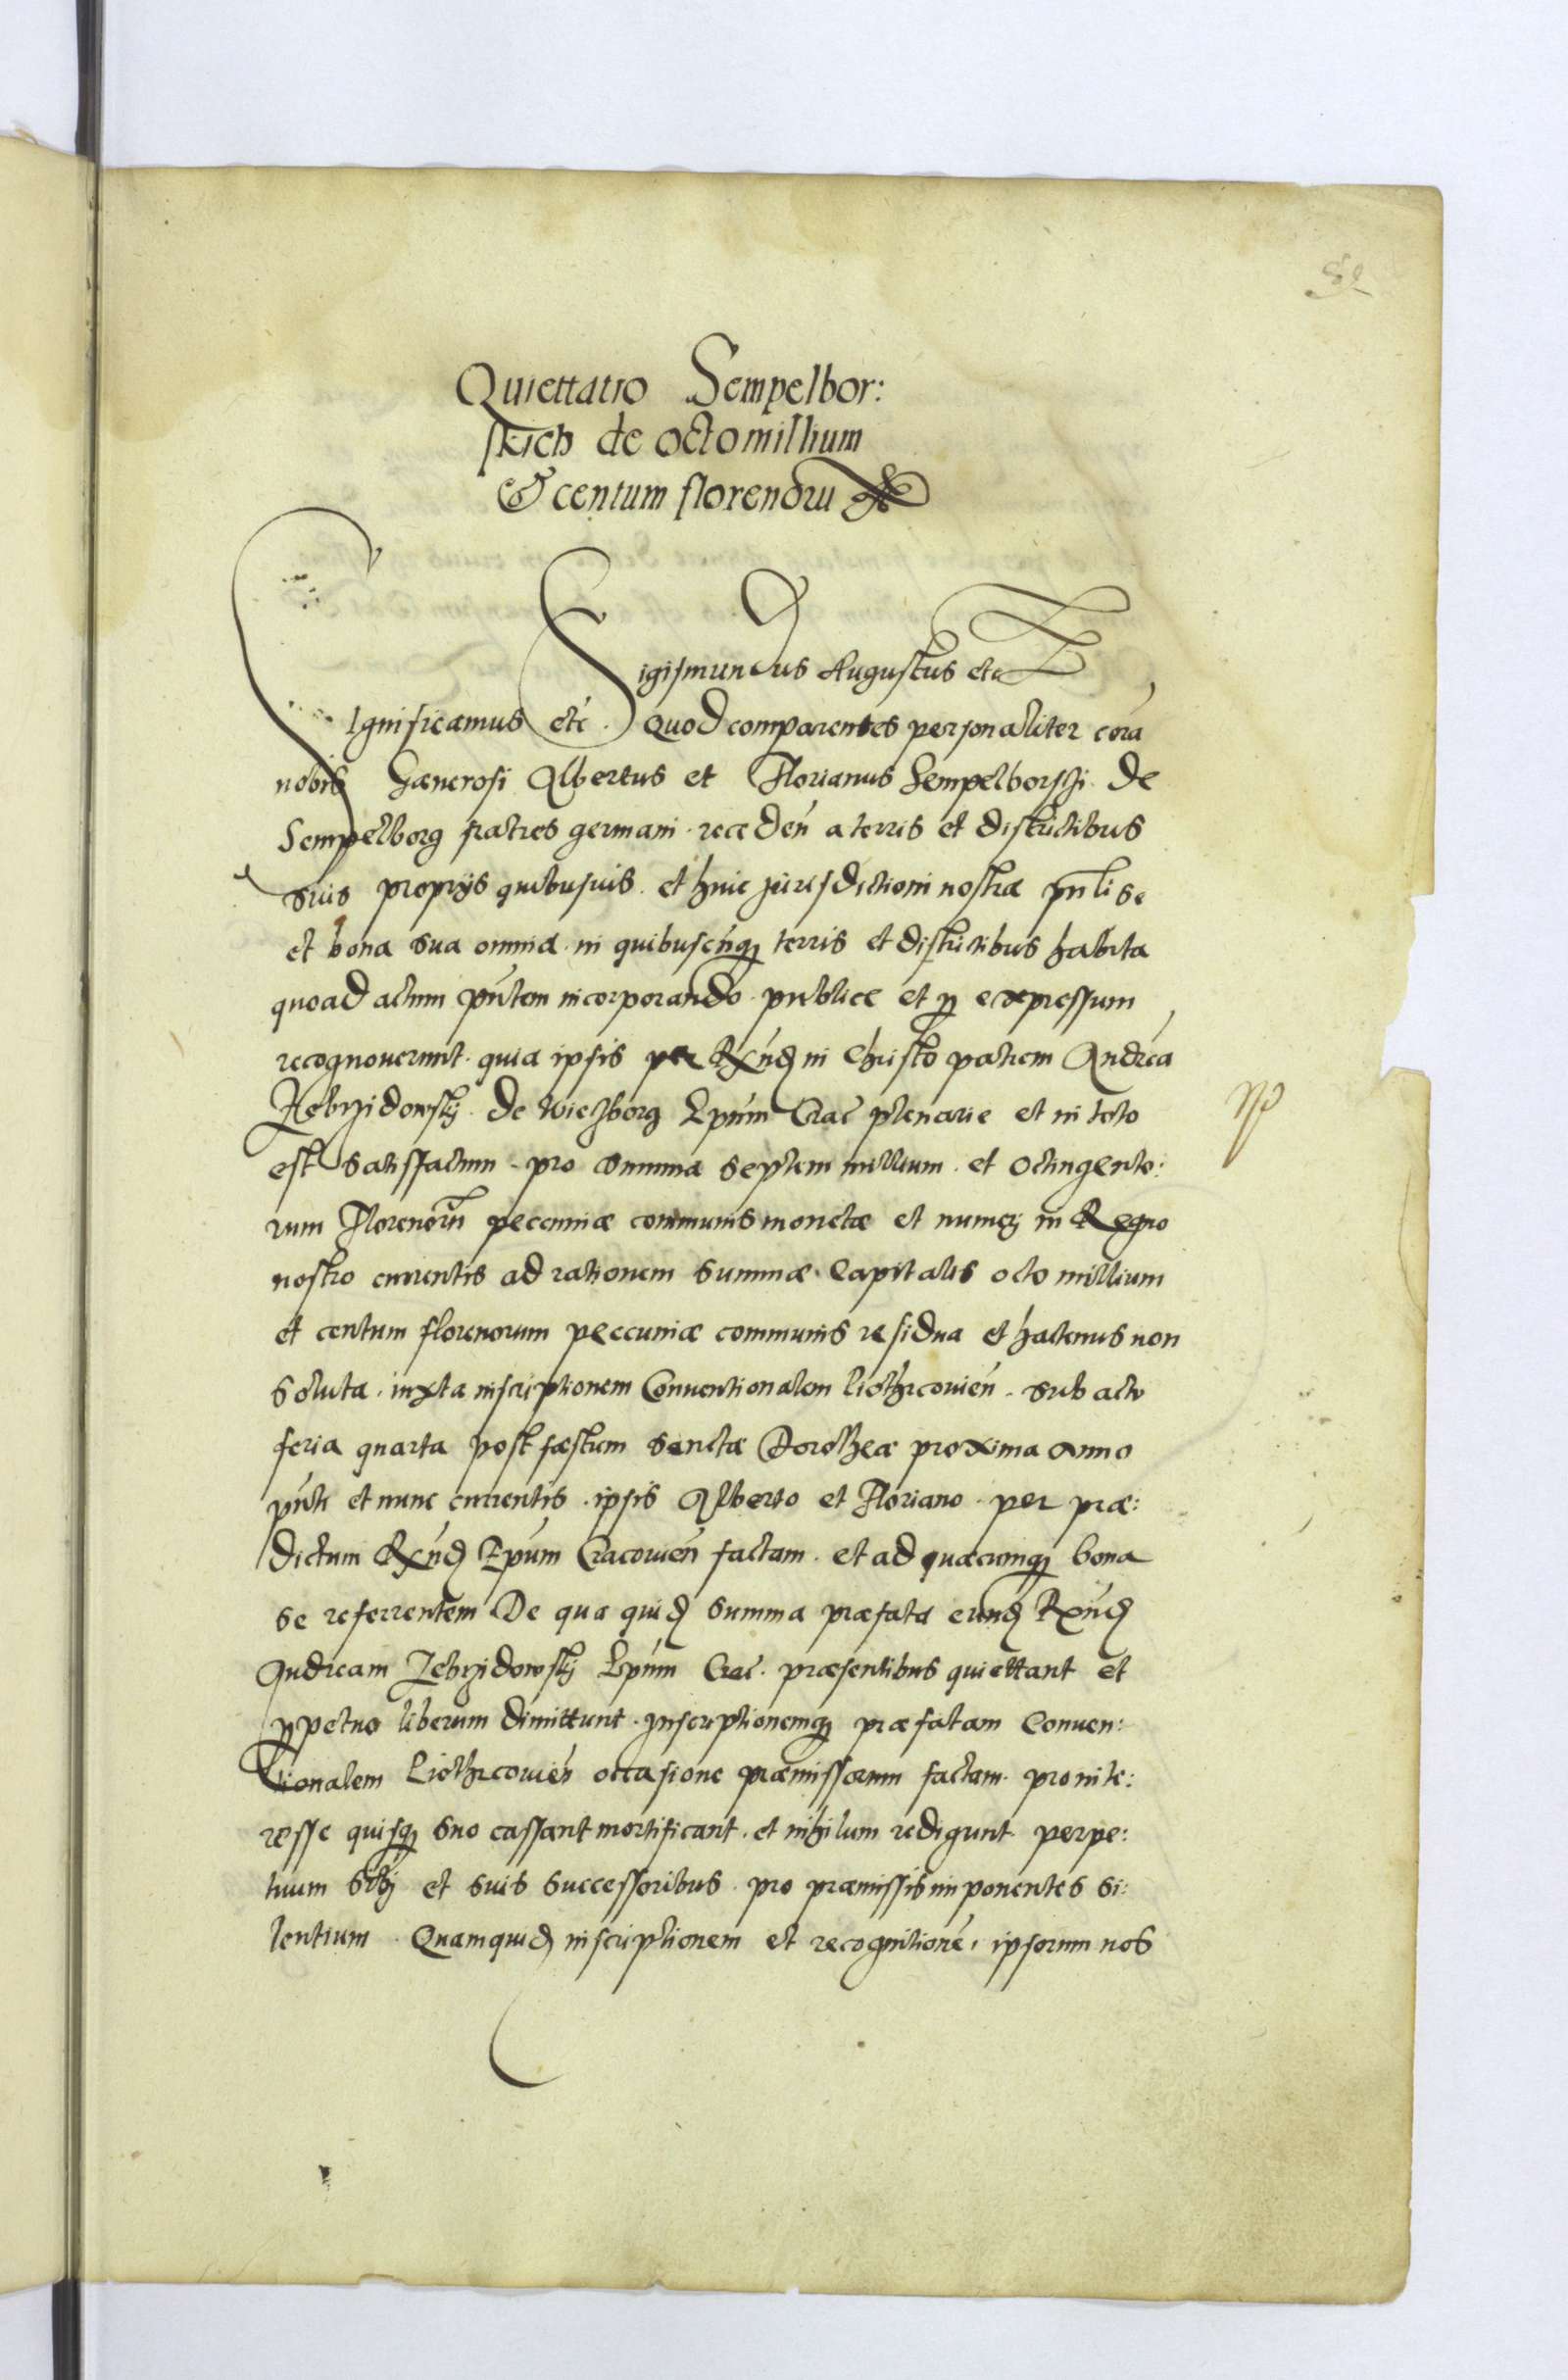 Quiettatio Sempelbor:
skich de octo millium
& centum florenorũ
Sigismundus Augustus etc
Significamus etc. Quod comparentes personaliter corã
nobis Generosi Albertus et Florianus Sempelborski de
Sempelborg fratres germani receden̄ a terris et districtibus
suis proprijs quibusuis et huic jurisdictioni nostræ pn̄ti se
et bona sua omnia in quibuscūq; terris et districtibus habita
quo ad actum pn̄tem incorporando publice et p expressum
recognouerunt quia ipsis per Rxn̄d in Christo patrem Andreã
Zebrzidowskj de Wieczborg Ep̄um Crac plenarie et in toto
est satisfactum pro summa septem millium et octingento:
rum Florenorū peccuniæ communis monetæ et numeri in Regno
nostro currentis ad rationem summæ Capitalis octo millium
et centum florenorum peccuniæ communis residua et hactenus non
soluta iuxta inscriptionem Conuentionalem Piothrcouien̄ sub actu
feria quarta post fæstum sanctæ Dorotheæ proxima anno
pn̄ti et nunc currentis ipsis Alberto et Floriano per præ:
dictum Rxn̄d Ep̄um Cracouien̄ factam et ad quæcunq; bona
se referrentem De qua quid summa præfata eund Rxn̄d
Andream Zebrzidowskj Ep̄um Crac. præsentibus quiettant et
ppetuo liberum dimittunt Inscriptionemq; præfatam Conuen:
tionalem Piothrcouien̄ occasione præmissorum factam pro inte:
resse quisq; suo cassant mortificant et nihilum redigunt perpe:
tuum sibj et suis successoribus pro præmissis imponentes si:
lentium Quamquid inscriptionem et recognitionē ipsorum nos